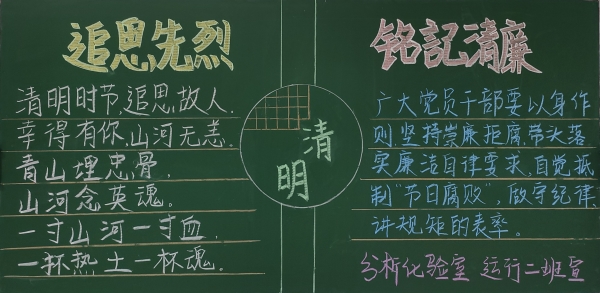 追思先烈
清明时节追思故人.
幸得有你,山河无恙.
青山埋忠骨,
山河念英魂。
一寸山河一寸血,
一抔热土一抔魂.
清明
铭記清廉
广大党员干部要以身作
则,坚持崇廉拒腐,带头落
实廉洁自律要求,自觉抵
制"节日腐败",做守纪律、
讲规矩的表率。
分析化验室 运行二班宣